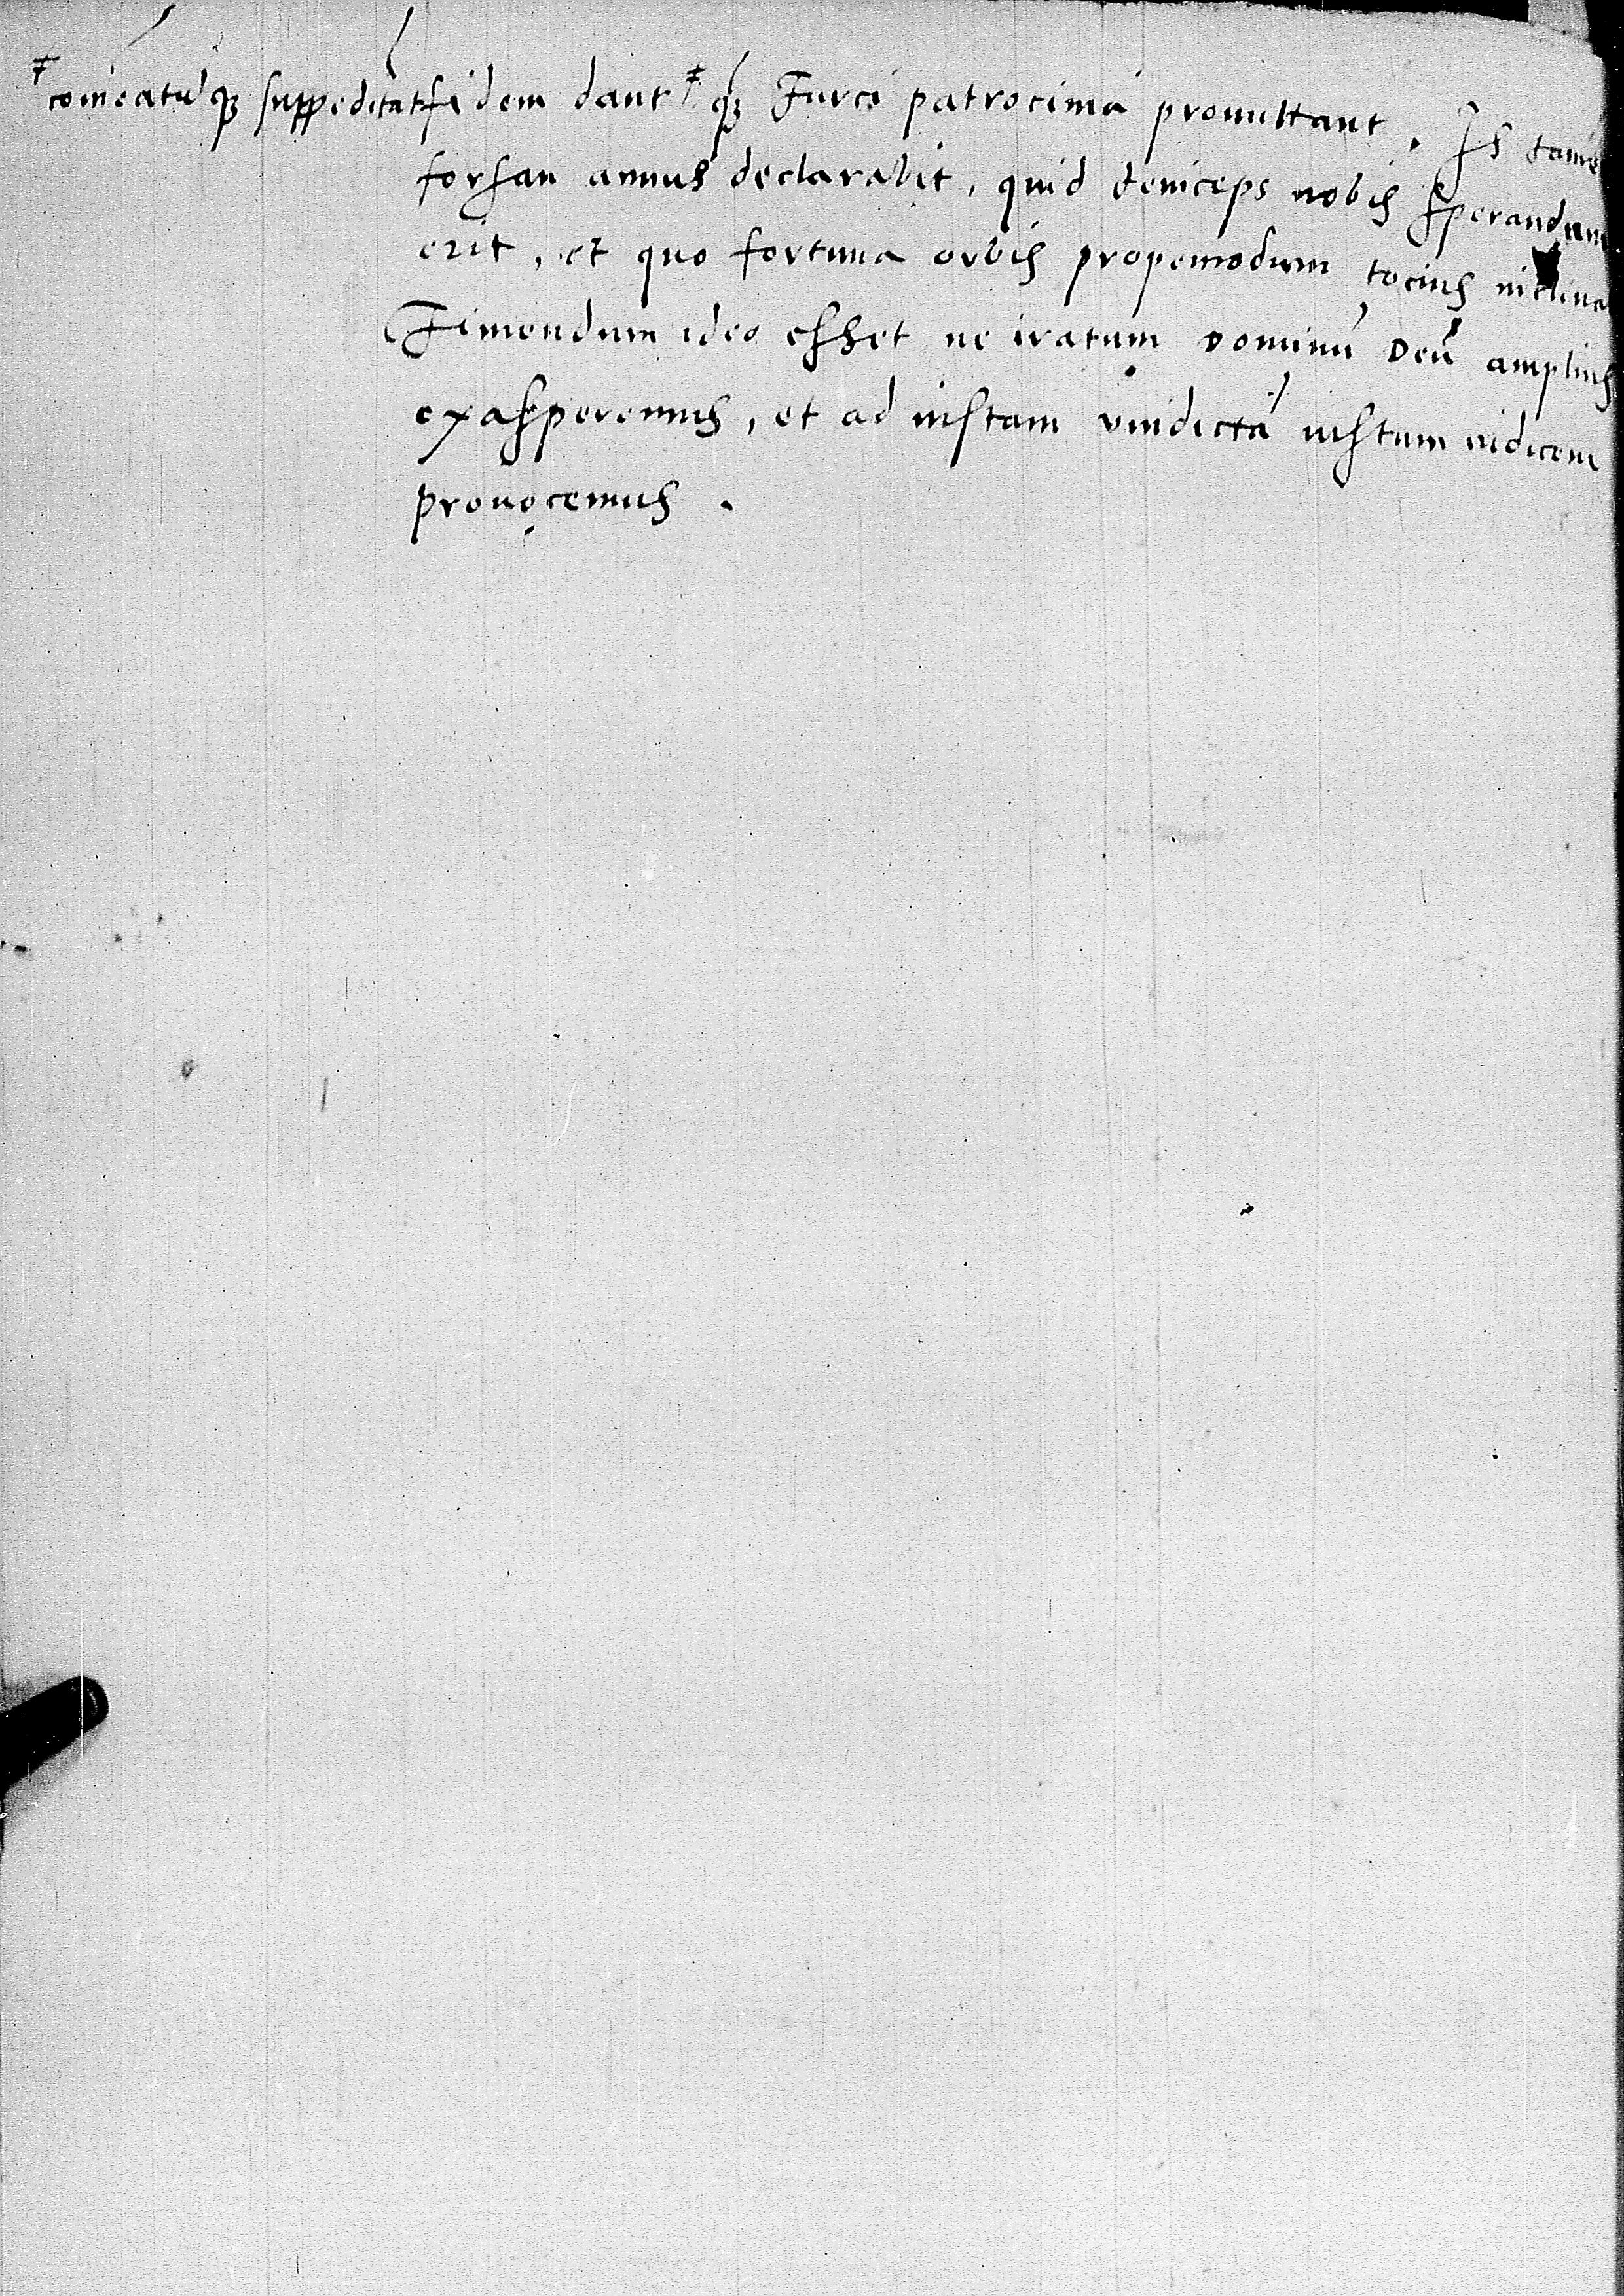 ≠ comeatūq₃ suppeditāt fidem dant ≠ q₃ Turci patrocinia promittant. Is tame
forsan annus declarabit, quid deinceps nobis sperandum
erit, et quo fortuna orbis propemodum tocius inclina
Timendum ideo esset ne iratum Dominū Deū amplius
exasperemus, et ad iustam vindictā iustum iudicem
prouocemus.